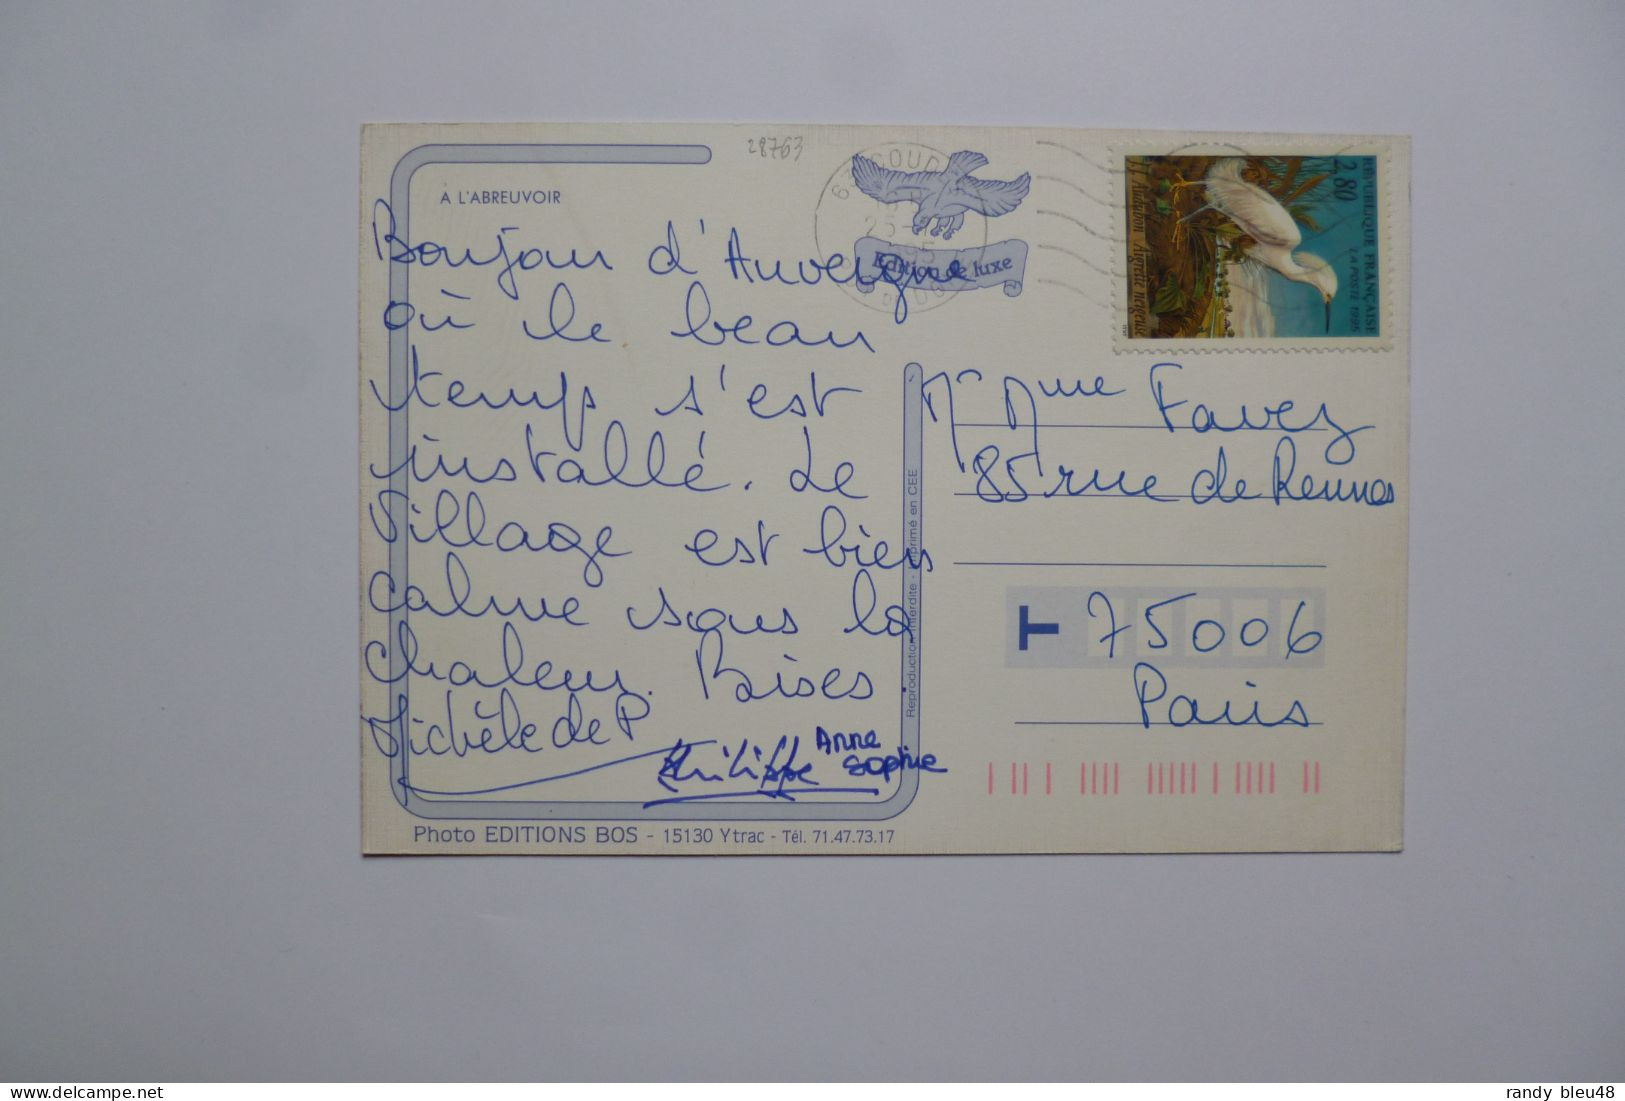 28763
À L'ABREUVOIR
Edition de luxe
Bonjour d'Auvergne
où le beau
temps s'est
installé. Le
village est bien
calme sous la
chaleur. Bises.
Michèle de P
Philippe
Anne
Sophie
Photo EDITIONS BOS - 15130 Ytrac - Tél. 71.47.73.17
Reproduction interdite - Imprimé en CEE
REPUBLIQUE FRANÇAISE
LA POSTE 1995
2,80
Audubon Aigrette neigeuse
Mr Mme Favez
85 rue de Rennes
T 75006
Paris
randy bleu48